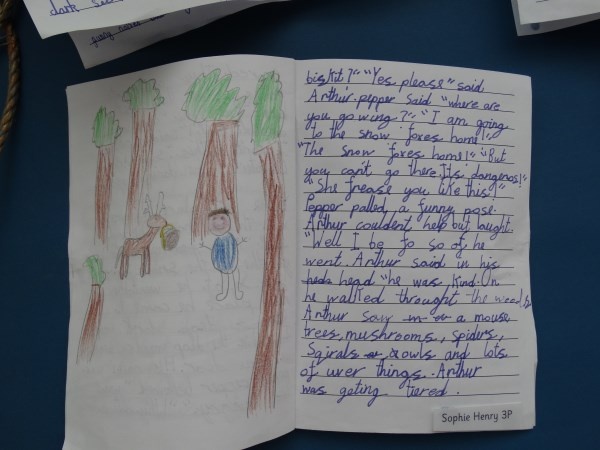 dark
biskit?" "Yes please" said
Arthur. pepper said "where are
you gowing?" "I am going
to the snow foxes home!"
"The snow foxes home!" "But
you can't go there. It's dangeros!"
"She frease you like this!"
Pepper palled a funny pose.
Arthur couldent help but laught.
"Well I be fo so of he
went. Arthur said in his
head "he was kind. On
he walked throught the woods
Arthur say a mouse
trees, mushrooms, spiders,
Sqirals owls and lots
of uver things. Arthur
was geting tiered.
Sophie Henry 3P